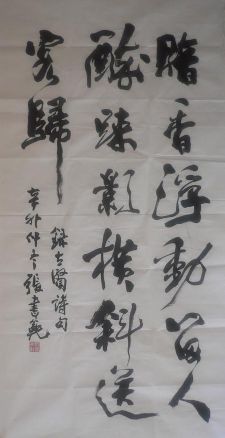 暗香浮動留人
醉疎影橫斜送
客歸
錄古賢詩句
辛卯仲冬張書範